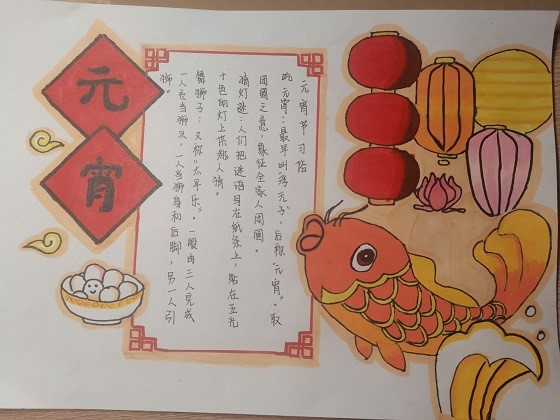 元
宵
元宵节习俗
吃元宵：最早叫"浮元子"，后称"元宵"。取
团圆之意，象征全家人团圆。
猜灯谜：人们把谜语写在纸条上，贴在五光
十色的灯上 人猜。
舞狮子：又称"太平乐"。一般由三人完成
一人充当狮头，一人当狮身和后脚，另一人引
狮。